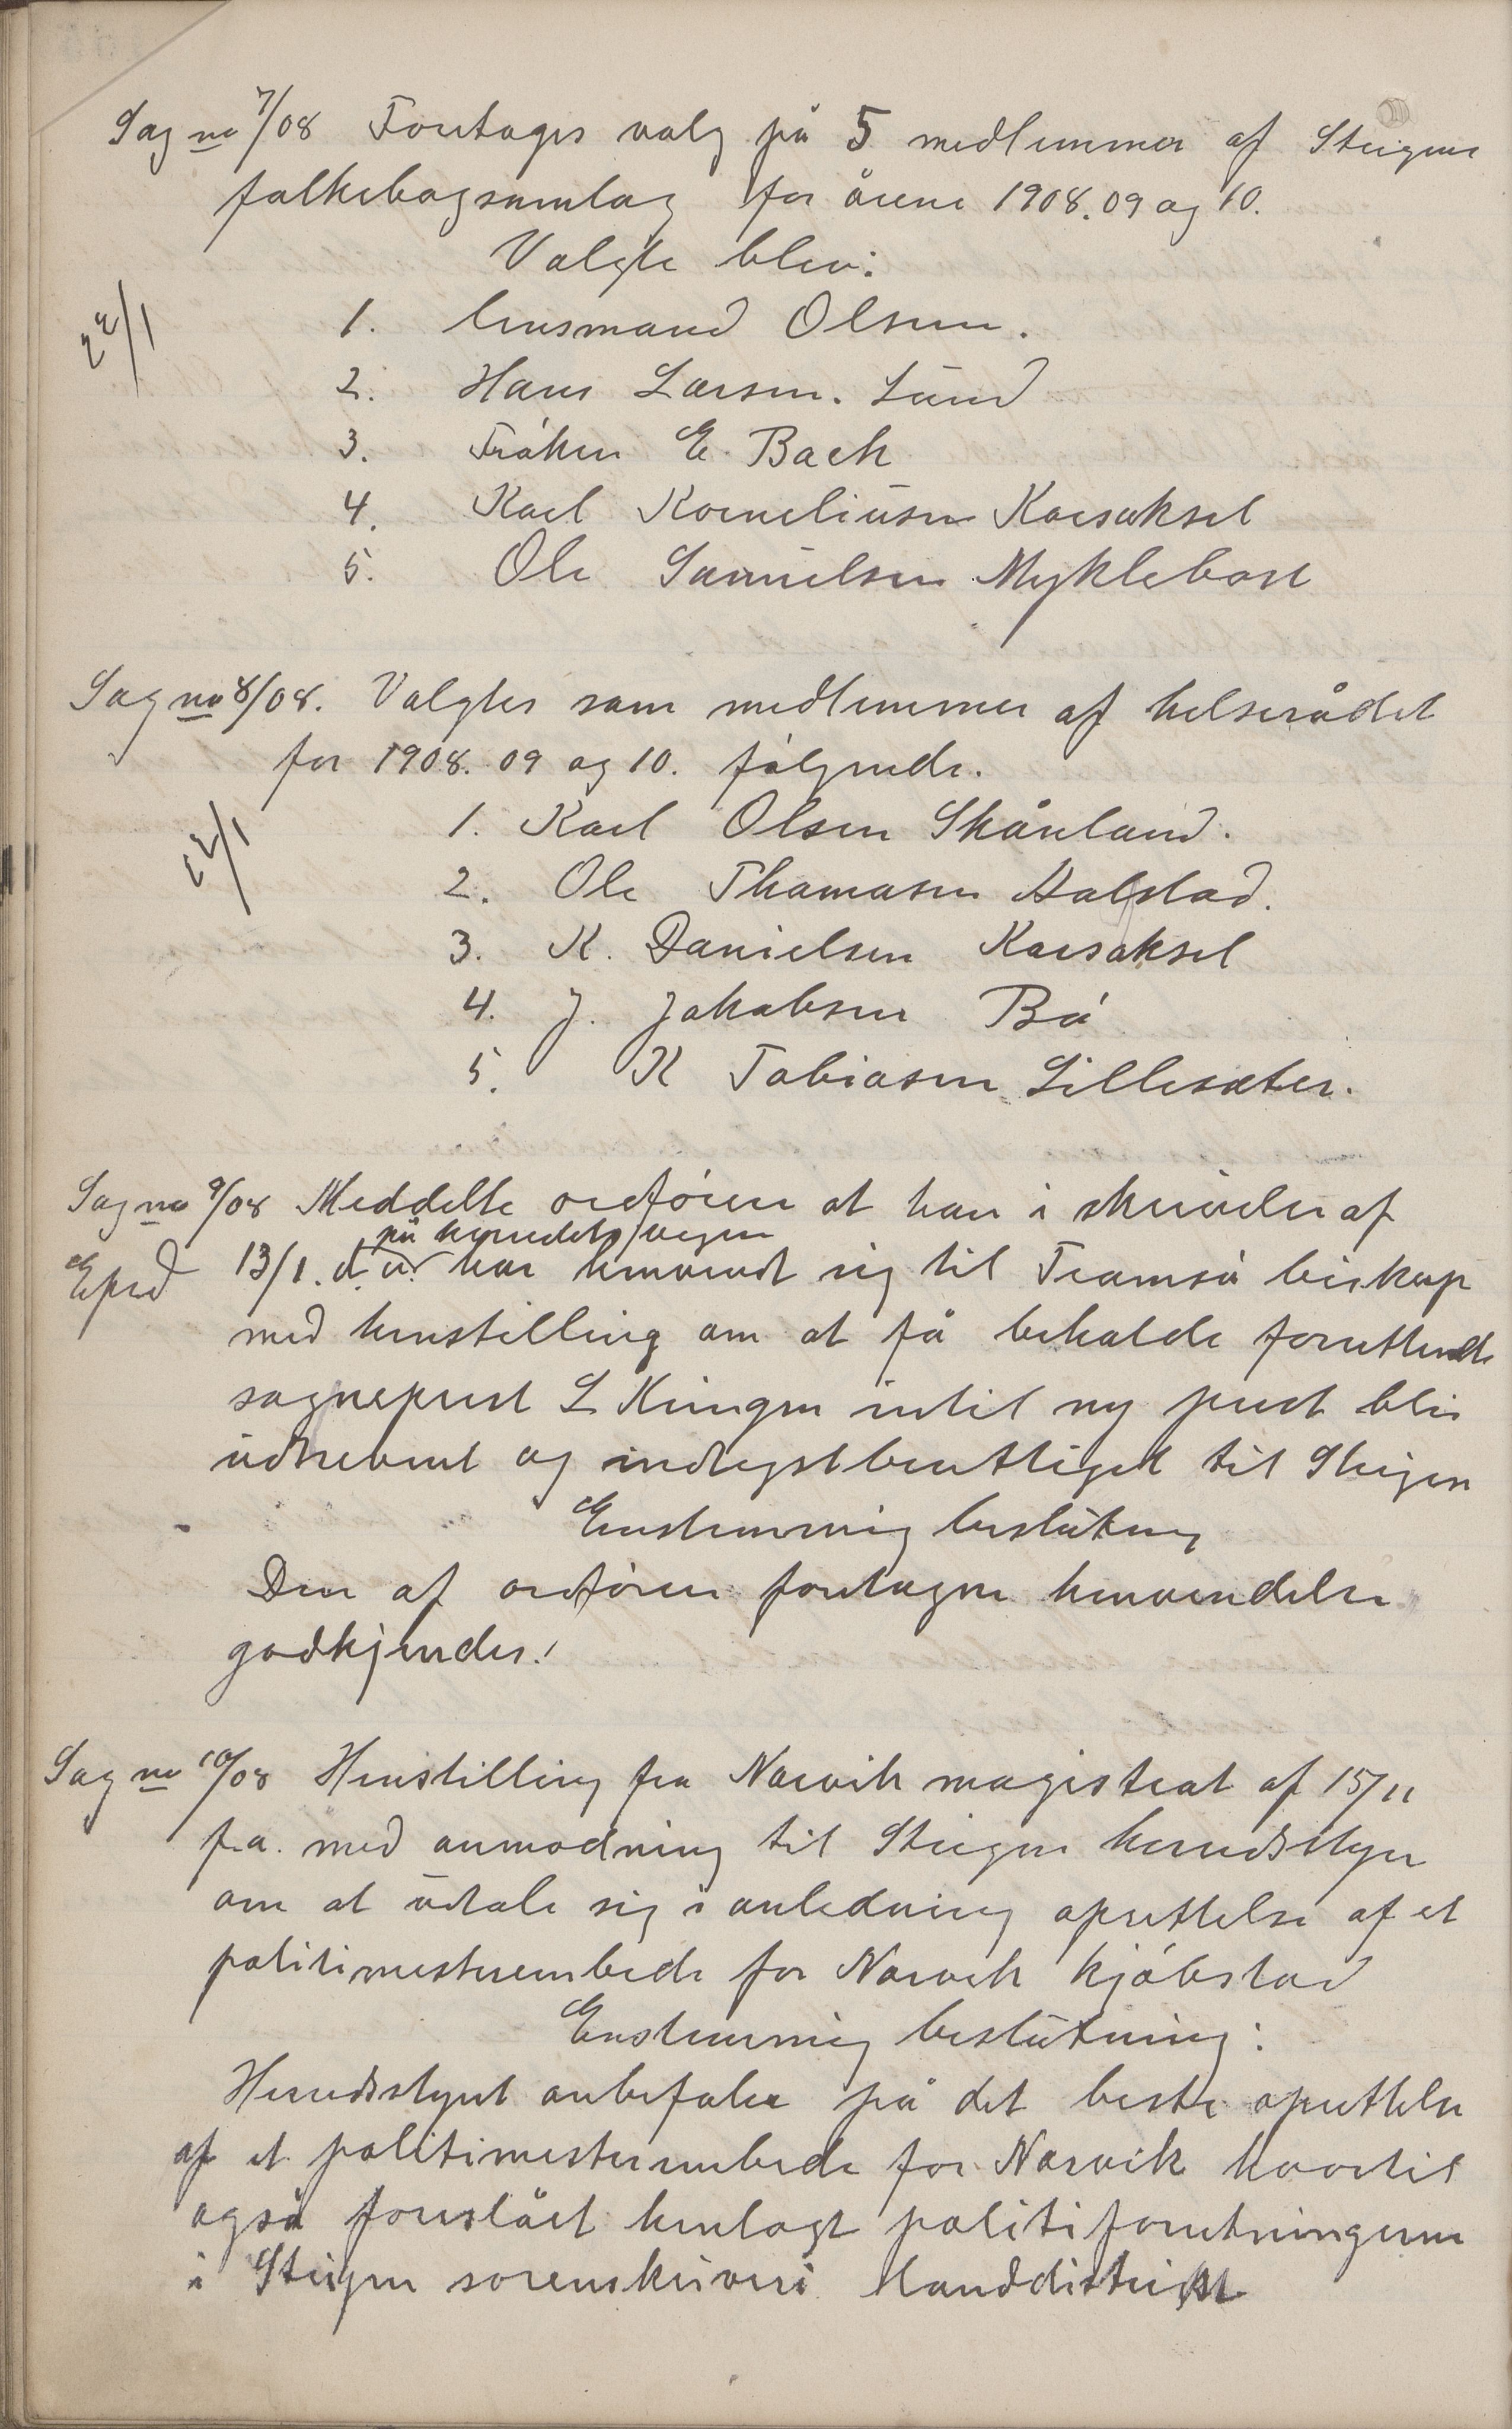 Sag no 7/08 Foretages valg på 5 medlemmer af Steigens
folkebogsamlag for årene 1908. 09 og 10.
Valgte blev:
22/1
1. lensmand Olsen.
2. Hans Larsen. Lund
3. Frøken E. Bach
4. Karl Korneliusen Korsoksel
5. Ole Samuelsen Myklebost
Sag no 8/08. Valgtes som medlemmer af helserådet
for 1908. 09 og 10. følgende.
22/1
1. Karl Olsen Skånland.
2. Ole Thomasen Holstad.
3. K. Danielsen Korsoksel
4. J. Jakobsen Bø
5. K Tobiasen Lillesæter.
Sag no 9/08 Meddelte ordføren at han i skrivelse af
på herredets vegne
Exped 13/1. d.å. har henvendt sig til Tromsø biskop
med henstilling om at få beholde forrettende
sogneprest L Kingen indtil ny prest blir
udnevnt og indtegstberettiget til Steigen
Enstemmig beslutning
Den af ordføren foretagne henvendelse
godkjendes.
Sag no 10/08 Henstilling fra Narvik magistrat af 15/11
f.a. med anmodning til Steigen herredsstyre
om at udtale sig i anledning oprettelse af et
politimesterembede for Narvik kjøbstad
Enstemmig beslutning:
Herredsstyret anbefaler på det beste oprettelse
af et politimesterembede for Narvik hvortil
også foreslået henlagt politiforretningerne
i Steigen sorenskriveri landdistrikt